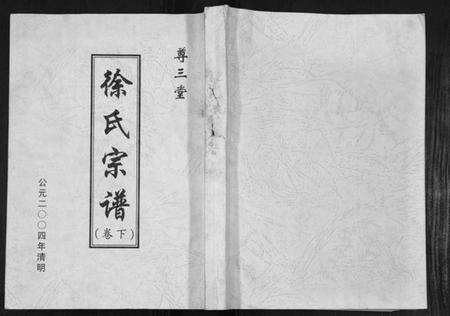 尊三堂
徐氏宗谱
（卷下）
公元二〇〇四年清明